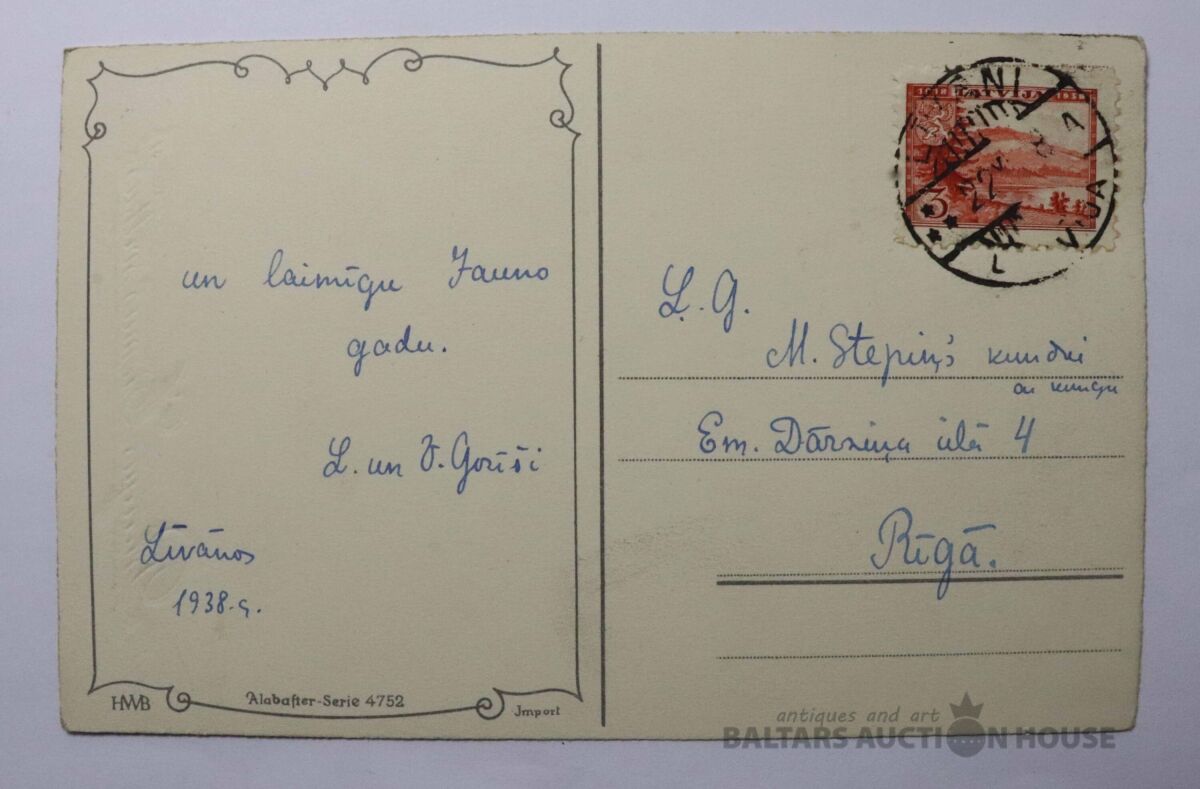 un laimīgu Jauno
gadu.
L. un J. Gorīši
Līvānos
1938. g.
HWB
Alabaſter-Serie 4752
Jmport
1918 LATVIJA 1938
3
LĪVĀNI
22
LATVIJA
Ļ. G.
M. Stepiņš kundzei
un kungu
Em. Dārziņa ielā 4
Rīgā.
antiques and art
BALTARS AUCTION HOUSE